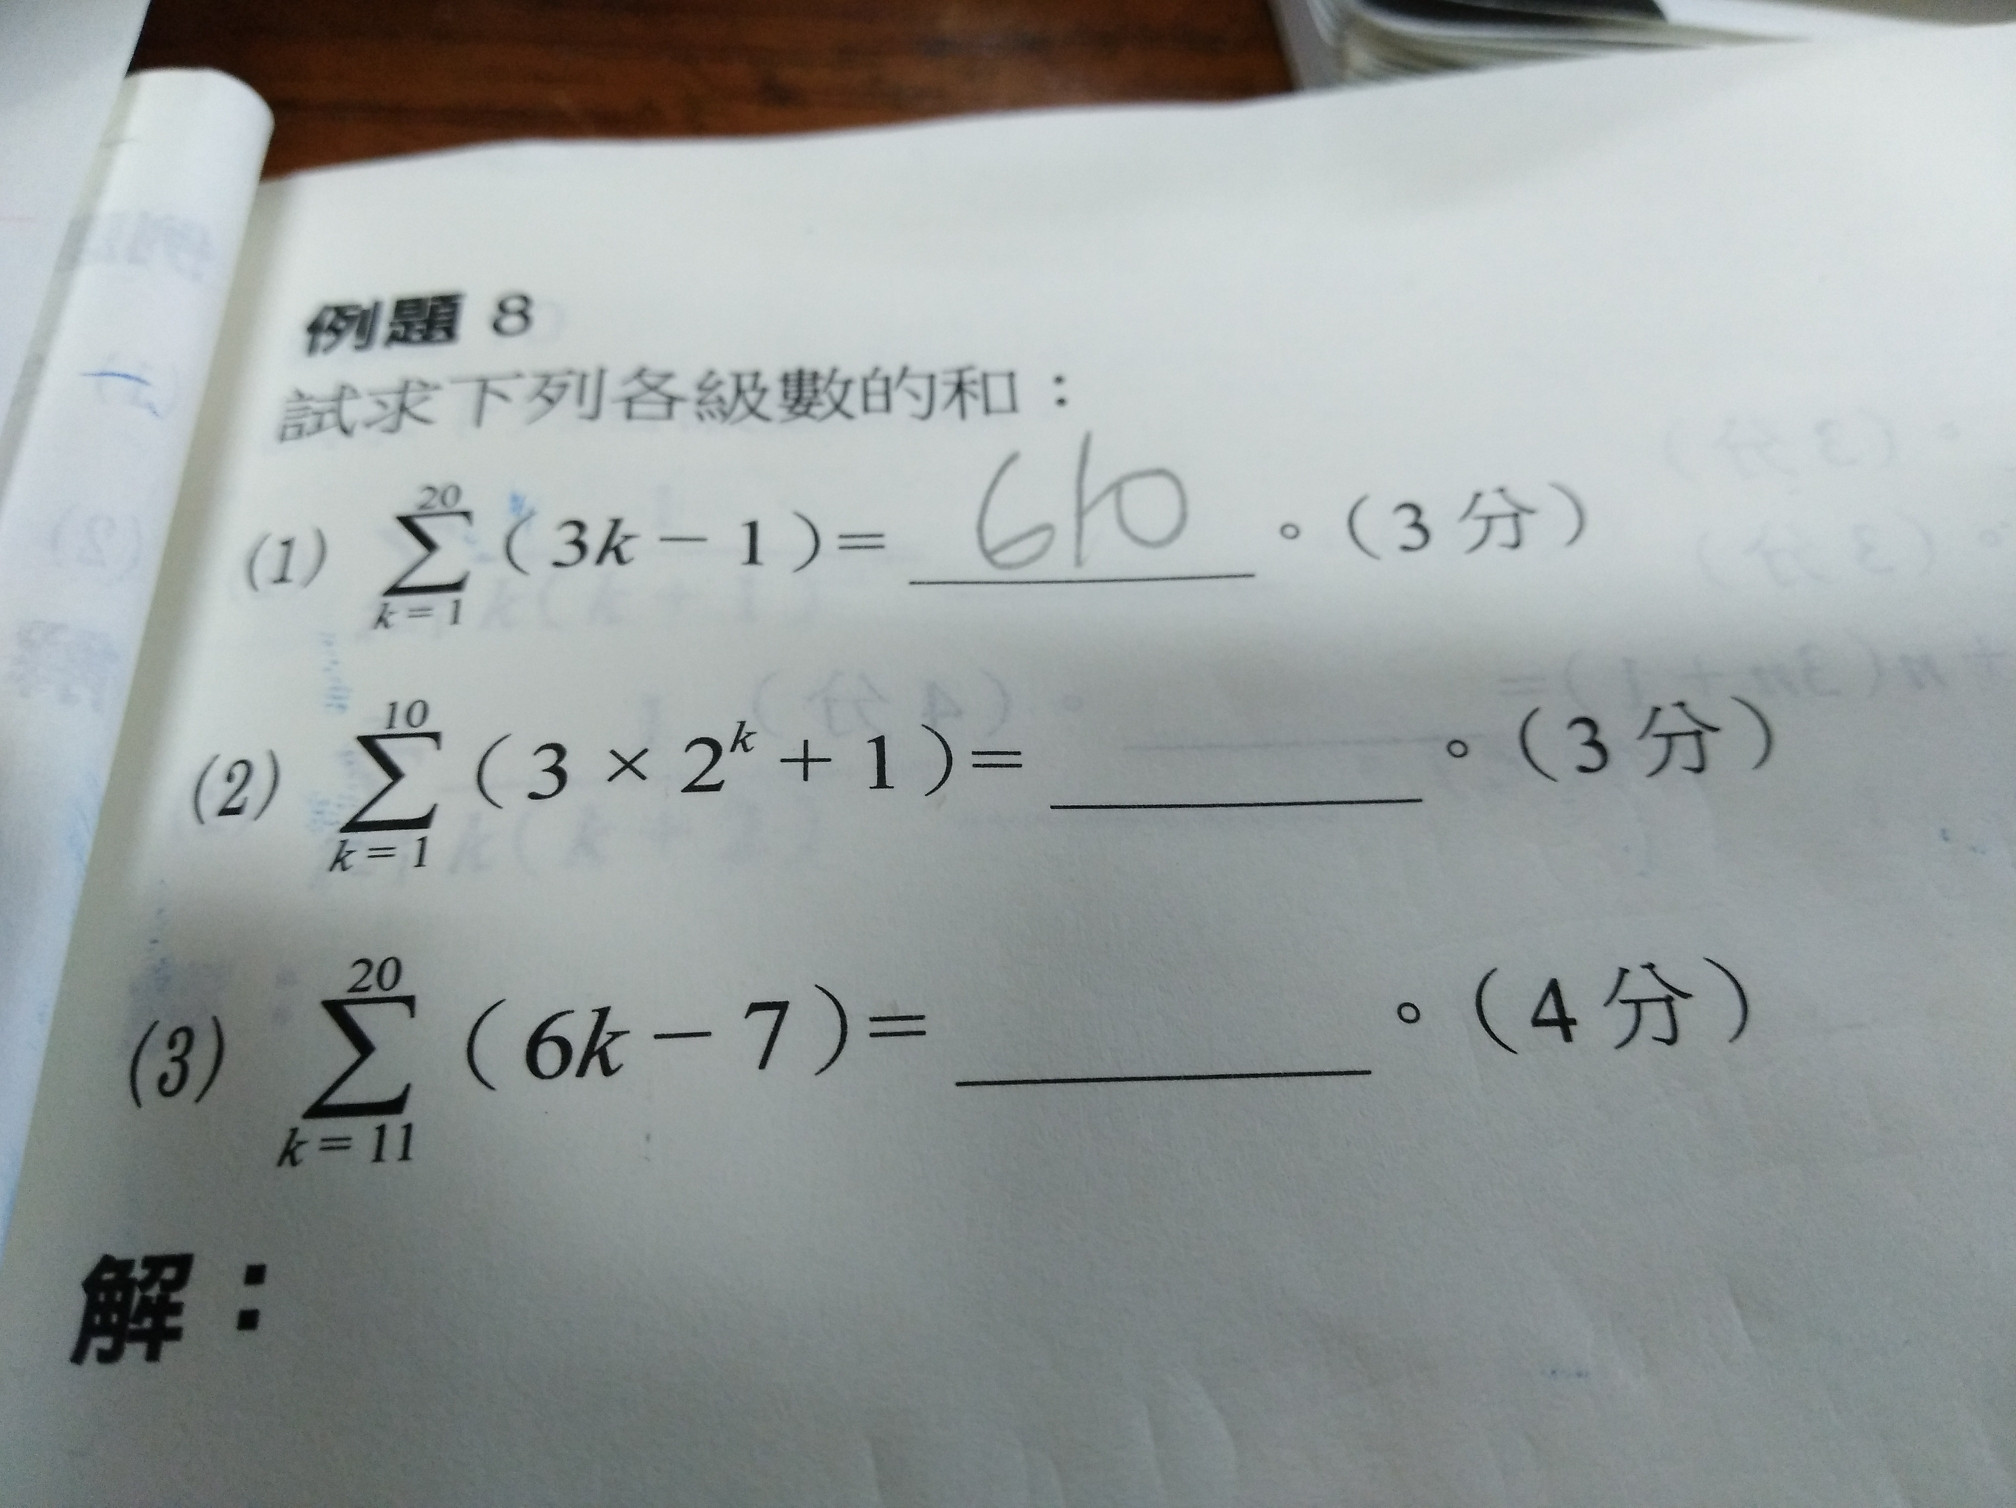 例題 8
試求下列各級數的和：
(1) \sum_{k=1}^{20} (3k-1)= 610 。(3分)
(2) \sum_{k=1}^{10} (3×2^k+1)= ______ 。(3分)
(3) \sum_{k=11}^{20} (6k-7)= ______ 。(4分)
解：